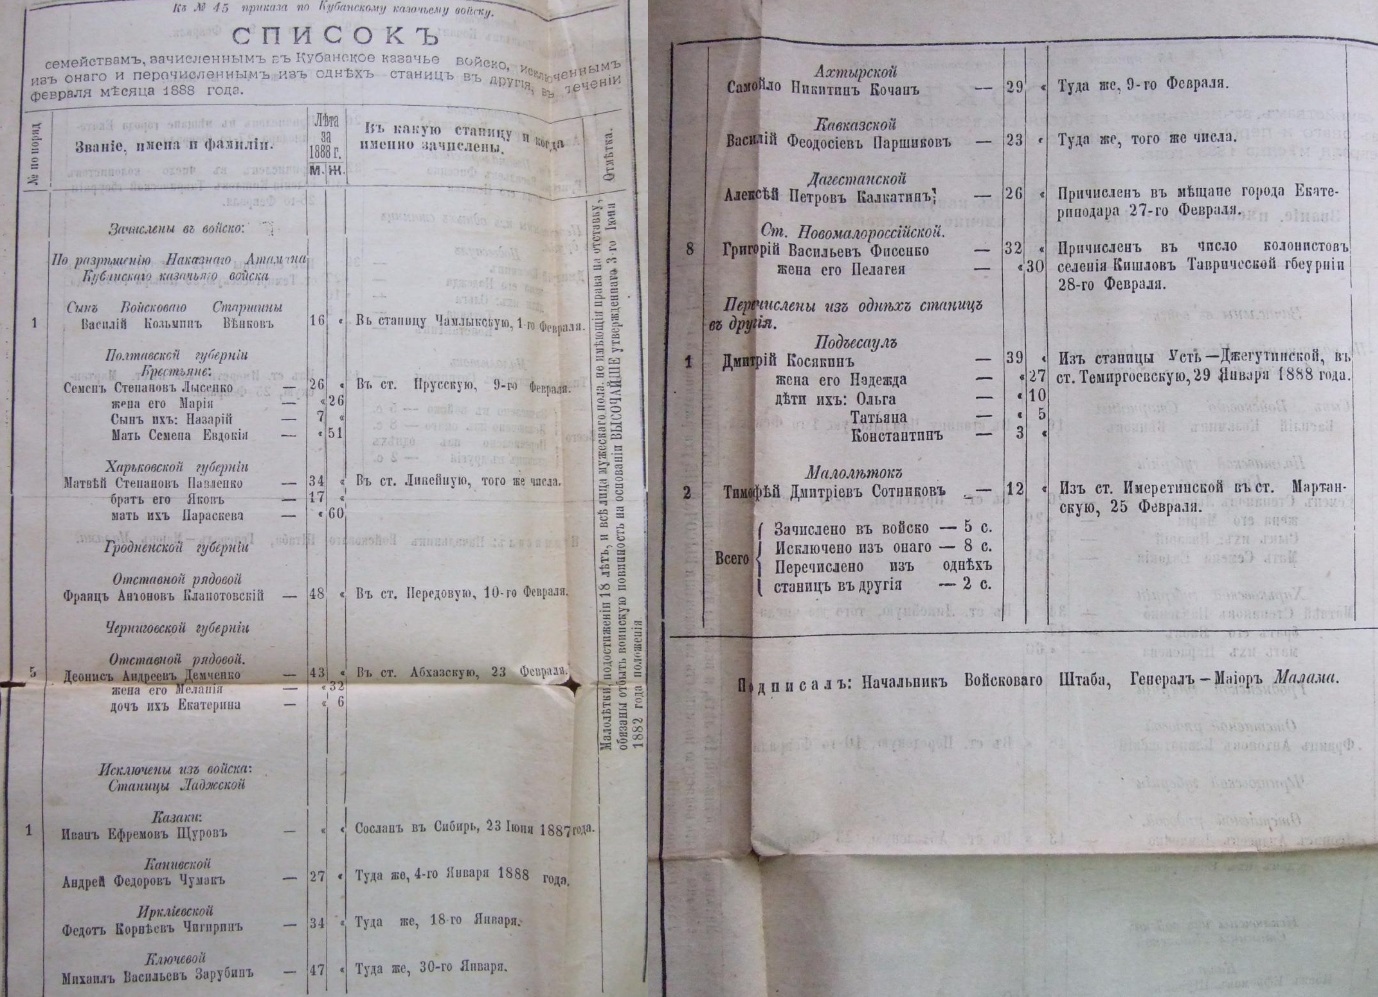 Къ № 45 приказа по Кубанскому казачьему войску.
СПИСОКЪ
семействамъ, зачисленнымъ въ Кубанское казачье войско, исключеннымъ
изъ онаго и перечисленнымъ изъ однѣхъ станицъ въ другія, въ теченіи
февраля мѣсяца 1888 года.
№ по поряд
Званіе, имена и фамиліи.
Лѣта за 1888 г.
м. ж.
Въ какую станицу и когда
именно зачислены.
Отмѣтка.
Зачислены въ войско:
По разрѣшенію Наказнаго Атамана
Кубанскаго казачьяго войска
Сынъ Войсковаго Старшины
1 Василій Козьминъ Вѣнковъ 16 « Въ станицу Чамлыкскую, 1-го Февраля.
Полтавской губерніи
Крестьяне:
Семенъ Степановъ Лысенко — 26 « Въ ст. Прусскую, 9-го Февраля.
жена его Марія — « 26
Сынъ ихъ: Назарій — 7 «
Мать Семена Евдокія — « 51
Харьковской губерніи
Матвѣй Степановъ Павленко — 34 « Въ ст. Линейную, того же числа.
братъ его Яковъ — 17 «
мать ихъ Параскева — « 60
Гродненской губерніи
Отставной рядовой
Францъ Антоновъ Клапотовскій — 48 « Въ ст. Передовую, 10-го Февраля.
Черниговской губерніи
Отставной рядовой.
5 Деонисъ Андреевъ Демченко — 43 « Въ ст. Абхазскую, 23 Февраля.
жена его Меланія « 32
дочь ихъ Екатерина — « 6
Исключены изъ войска:
Станицы Ладжской
Казаки:
1 Иванъ Ефремовъ Щуровъ — « « Сосланъ въ Сибирь, 23 Іюня 1887 года.
Каневской
Андрей Федоровъ Чумакъ — 27 « Туда же, 4-го Января 1888 года.
Ирклiевской
Федотъ Корнѣевъ Чигиринъ — 34 « Туда же, 18-го Января.
Ключевой
Михаилъ Васильевъ Зарубинъ — 47 « Туда же, 30-го Января.
Малолѣтки, недостигніи 18 лѣтъ, и всѣ лица мужескаго пола, не имѣющія права на отставку,
обязаны отбыть воинскую повинность на основаніи ВЫСОЧАЙШЕ утвержденнаго 3-го Іюня
1882 года положенія.
Ахтырской
Самойло Никитинъ Кочанъ — 29 « Туда же, 9-го Февраля.
Кавказской
Василій Феодосіевъ Паршиковъ — 23 « Туда же, того же числа.
Дагестанской
Алексѣй Петровъ Калкатинъ; 26 « Причисленъ въ мѣщане города Екате-
ринодара 27-го Февраля.
Ст. Новомалороссійской.
8 Григорій Васильевъ Фисенко — 32 « Причисленъ въ число колонистовъ
жена его Пелагея — « 30 селенія Кишловъ Таврической гбеурніи
28-го Февраля.
Перечислены изъ однѣхъ станицъ
въ другія.
Подъесаулъ
1 Дмитрій Косякинъ — 39 « Изъ станицы Усть—Джегутинской, въ
жена его Надежда — « 27 ст. Темиргоевскую, 29 Января 1888 года.
дѣти ихъ: Ольга — « 10
Татьяна — « 5
Константинъ — 3 «
Малолѣтокъ
2 Тимофѣй Дмитріевъ Сотниковъ — 12 « Изъ ст. Имеретинской въ ст. Мартан-
скую, 25 Февраля.
Всего
Зачислено въ войско — 5 с.
Исключено изъ онаго — 8 с.
Перечислено изъ однѣхъ
станицъ въ другія — 2 с.
Подписалъ: Начальникъ Войсковаго Штаба, Генералъ—Маіоръ Малама.